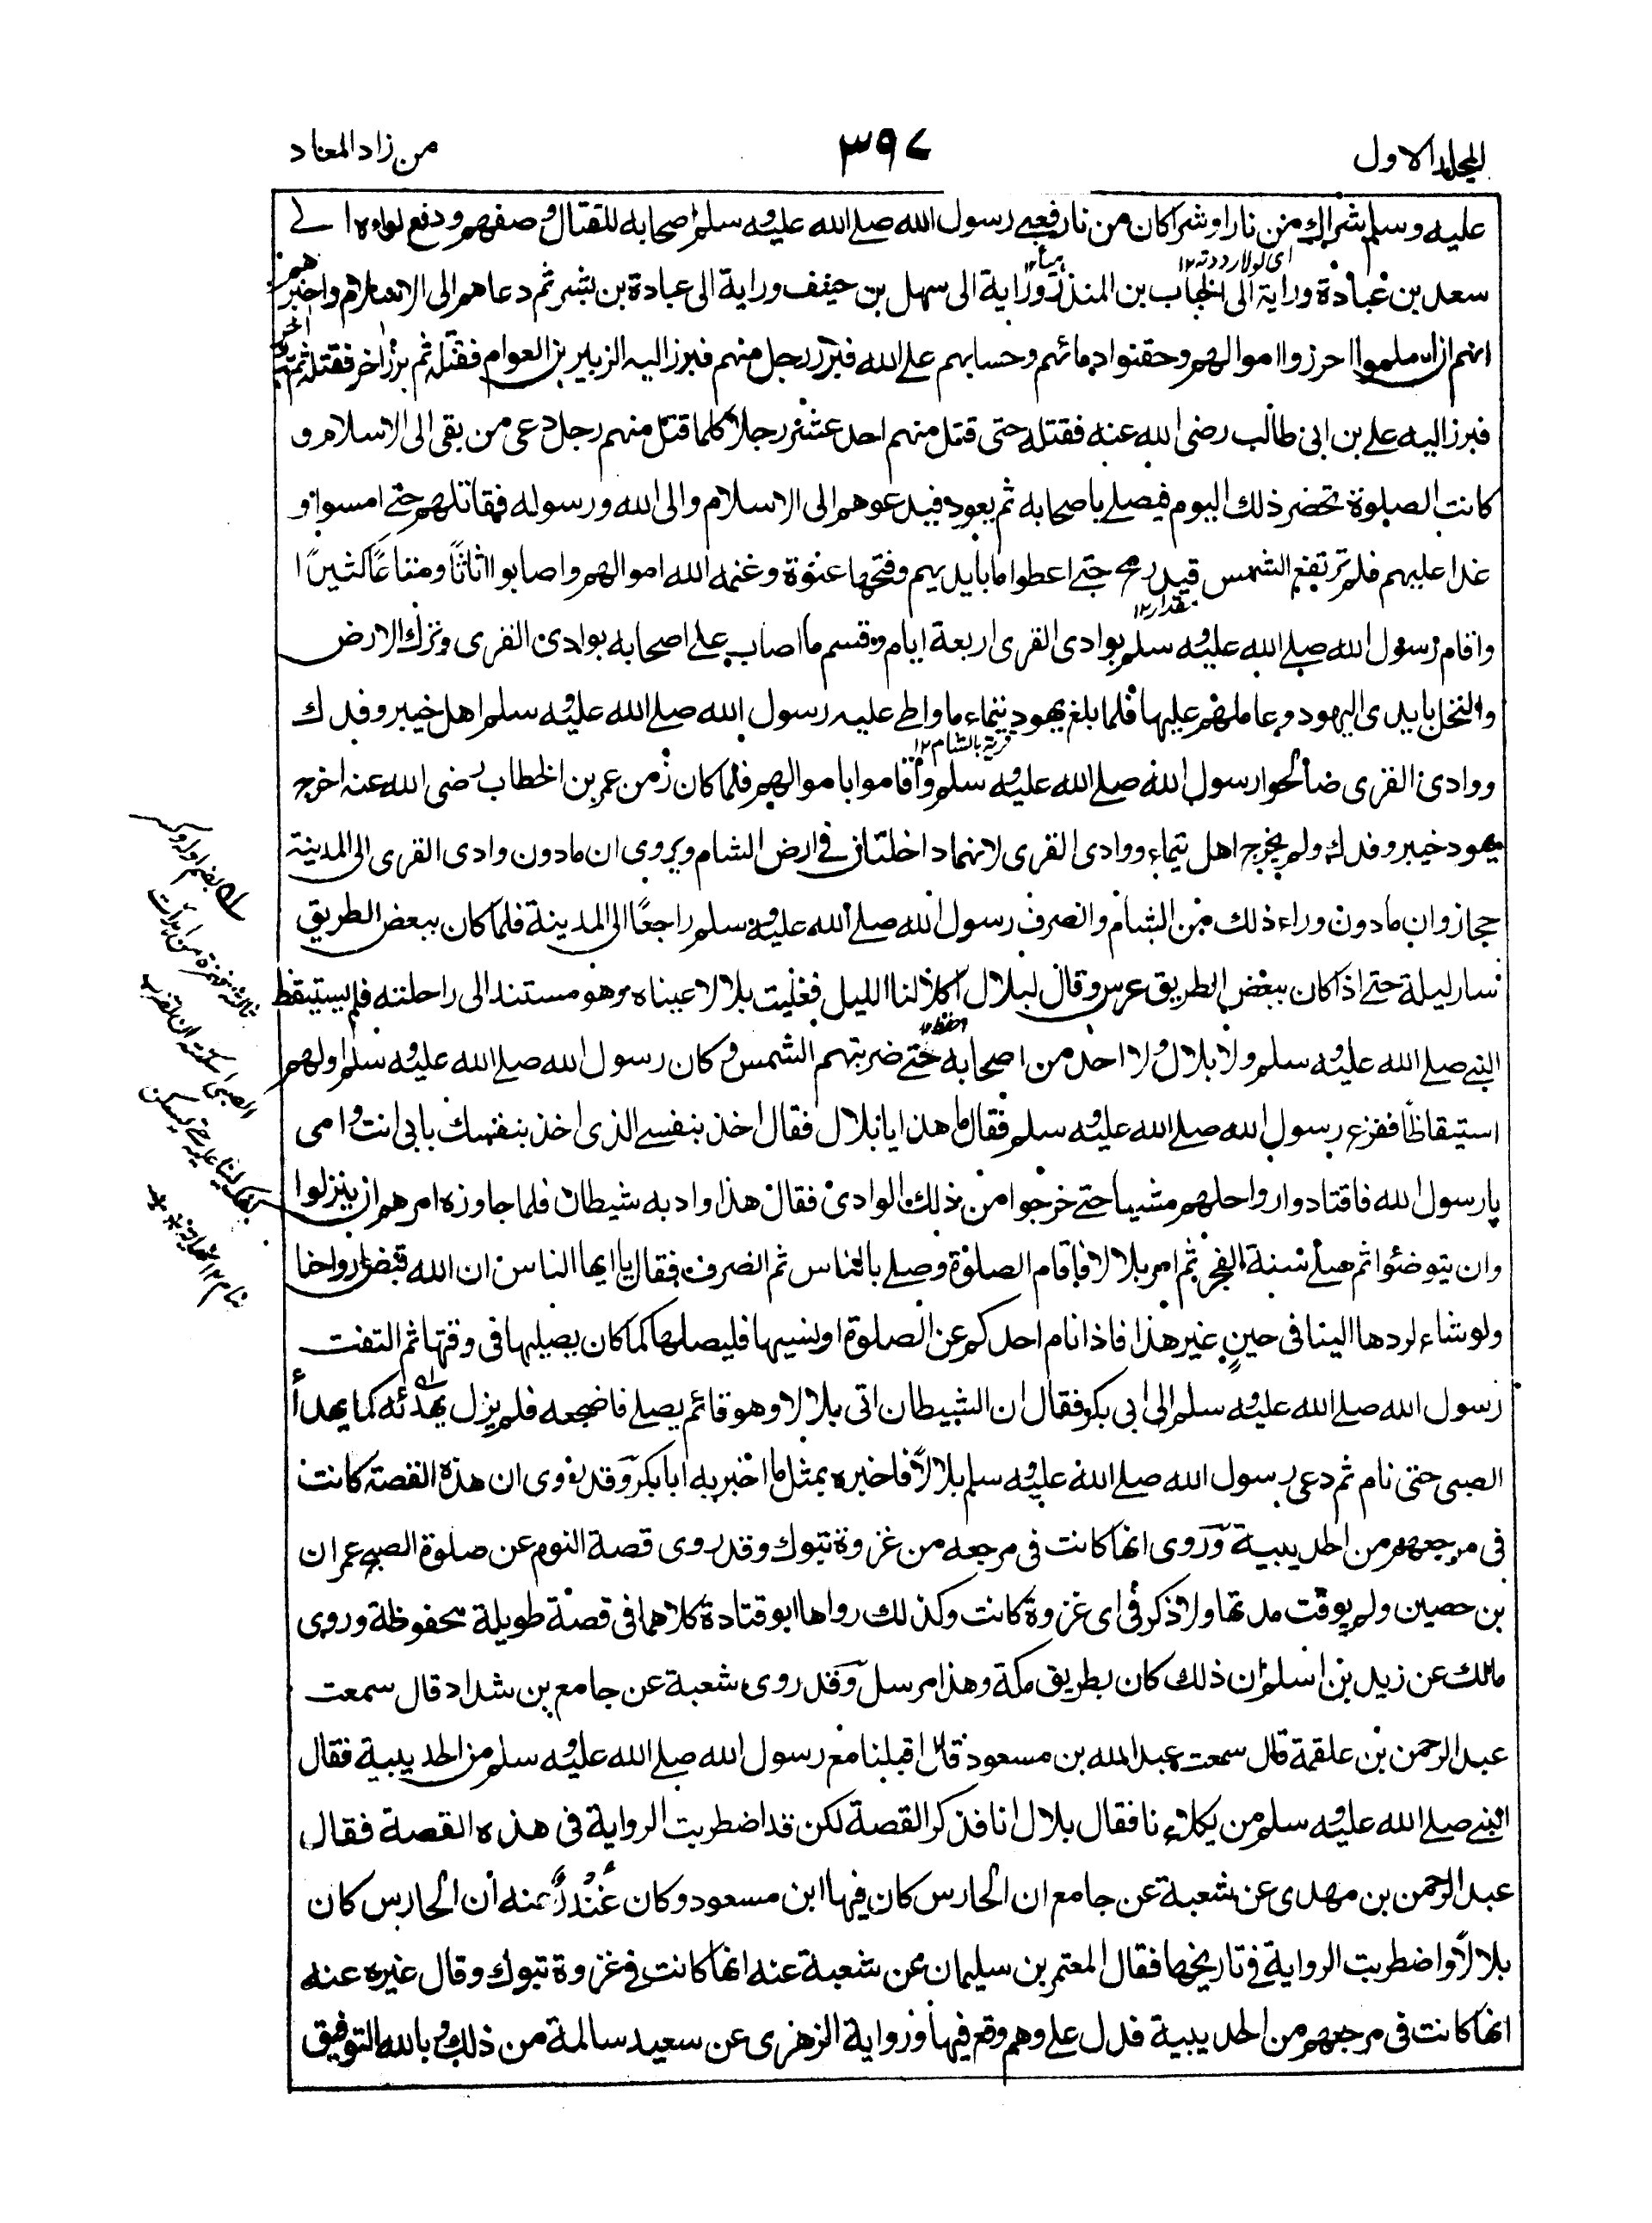 المجلد الاول
٣٩٧
من زاد المعاد
عليه وسلم شراك من نار او شراكان من نار فعبے رسول الله صلے الله عليه وسلم اصحابه للقتال وصفهم ودفع لواءه الے
سعد بن عبادة وراية الى الحباب بن المنذر وراية الى سهل بن حنيف وراية الى عبادة بن بشر ثم دعاهم الى الاسلام واخبرهم
انهم ان اسلموا احرزوا اموالهم وحقنوا دمائهم وحسابهم علے الله فبرز رجل منهم فبرز اليه الزبير بن العوام فقتله ثم برز اخر فقتله ثم برز اخر
فبرز اليه علے بن ابى طالب رضى الله عنه فقتله حتى قتل منهم احد عشر رجلا كلما قتل منهم رجل دعى من بقى الى الاسلام و
كانت الصلوة تحضر ذلك اليوم فيصلے باصحابه ثم يعود فيدعوهم الى الاسلام والى الله ورسوله فقاتلهم حتے امسوا و
غدا عليهم فلم ترتفع الشمس قيد رمح حتے اعطوا ما بايديهم وفتحها عنوة وغنمه الله اموالهم واصابوا اثاثًا ومتاعًا كثيرًا
واقام رسول الله صلے الله عليه وسلم بوادى القرى اربعة ايام وقسم ما اصاب علے اصحابه بوادى القرى وترك الارض
والنخل بايدى اليهود وعاملهم عليها فلما بلغ يهود تيماء ما واطے عليه رسول الله صلے الله عليه وسلم اهل خيبر وفدك
ووادى القرى صالحوا رسول الله صلے الله عليه وسلم واقاموا باموالهم فلما كان زمن عمر بن الخطاب رضى الله عنه اخرج
يهود خيبر وفدك ولم يخرج اهل تيماء ووادى القرى لانهما داخلتان فے ارض الشام ويروى ان ما دون وادى القرى الى المدينة
حجاز وان ما دون وراء ذلك من الشام وانصرف رسول الله صلے الله عليه وسلم راجعًا الى المدينة فلما كان ببعض الطريق
سار ليلة حتے اذا كان ببعض الطريق عرس وقال لبلال اكلأ لنا الليل فغلبت بلالا عيناه وهو مستند الى راحلته فلم يستيقظ
النبے صلے الله عليه وسلم ولا بلال ولا احد من اصحابه حتے ضربتهم الشمس وكان رسول الله صلے الله عليه وسلم اولهم
استيقاظًا ففزع رسول الله صلے الله عليه وسلم فقال ما هذا يا بلال فقال اخذ بنفسے الذى اخذ بنفسك بابى انت وامى
يا رسول الله فاقتادوا رواحلهم مشيا حتے خرجوا من ذلك الوادى فقال هذا واد به شيطان فلما جاوزه امرهم ان ينزلوا
وان يتوضئوا ثم صلے سنة الفجر ثم امر بلالا فاقام الصلوة وصلے بالناس ثم انصرف فقال يا ايها الناس ان الله قبض ارواحنا
ولو شاء لردها الينا فى حينٍ غير هذا فاذا نام احدكم عن الصلوة او نسيها فليصلها كما كان يصليها فى وقتها ثم التفت
رسول الله صلے الله عليه وسلم الى ابى بكر فقال ان الشيطان اتى بلالا وهو قائم يصلے فاضجعه فلم يزل يهدئه كما يهدأ
الصبى حتى نام ثم دعى رسول الله صلے الله عليه وسلم بلالاً فاخبره بمثل ما اخبر به ابا بكر وقد روى ان هذه القصة كانت
فى مرجعهم من الحديبية وروى انها كانت فى مرجعه من غزوة تبوك وقد روى قصة النوم عن صلوة الصبح عمران
بن حصين ولم يوقت مدتها ولا ذكر فى اى غزوة كانت وكذلك رواها ابو قتادة كلاهما فى قصة طويلة محفوظة وروى
مالك عن زيد بن اسلم ان ذلك كان بطريق مكة وهذا مرسل وقد روى شعبة عن جامع بن شداد قال سمعت
عبد الرحمن بن علقمة قال سمعت عبد الله بن مسعود قال اقبلنا مع رسول الله صلے الله عليه وسلم من الحديبية فقال
النبے صلے الله عليه وسلم من يكلاءنا فقال بلال انا فذكر القصة لكن قد اضطربت الرواية فى هذه القصة فقال
عبد الرحمن بن مهدى عن شعبة عن جامع ان الحارس كان فيها ابن مسعود وكان غُنْدرٌ عنه ان الحارس كان
بلالاً واضطربت الرواية فے تاريخها فقال المعتمر بن سليمان عن شعبة عنه انها كانت فے غزوة تبوك وقال غيره عنه
انها كانت فى مرجعهم من الحديبية فدل علے وهم وقع فيها ورواية الزهرى عن سعيد سالمة من ذلك وبالله التوفيق
اى لولا رددته ١٢
مقدار ١٢
قرية بالشام ١٢
احفظ ١٢